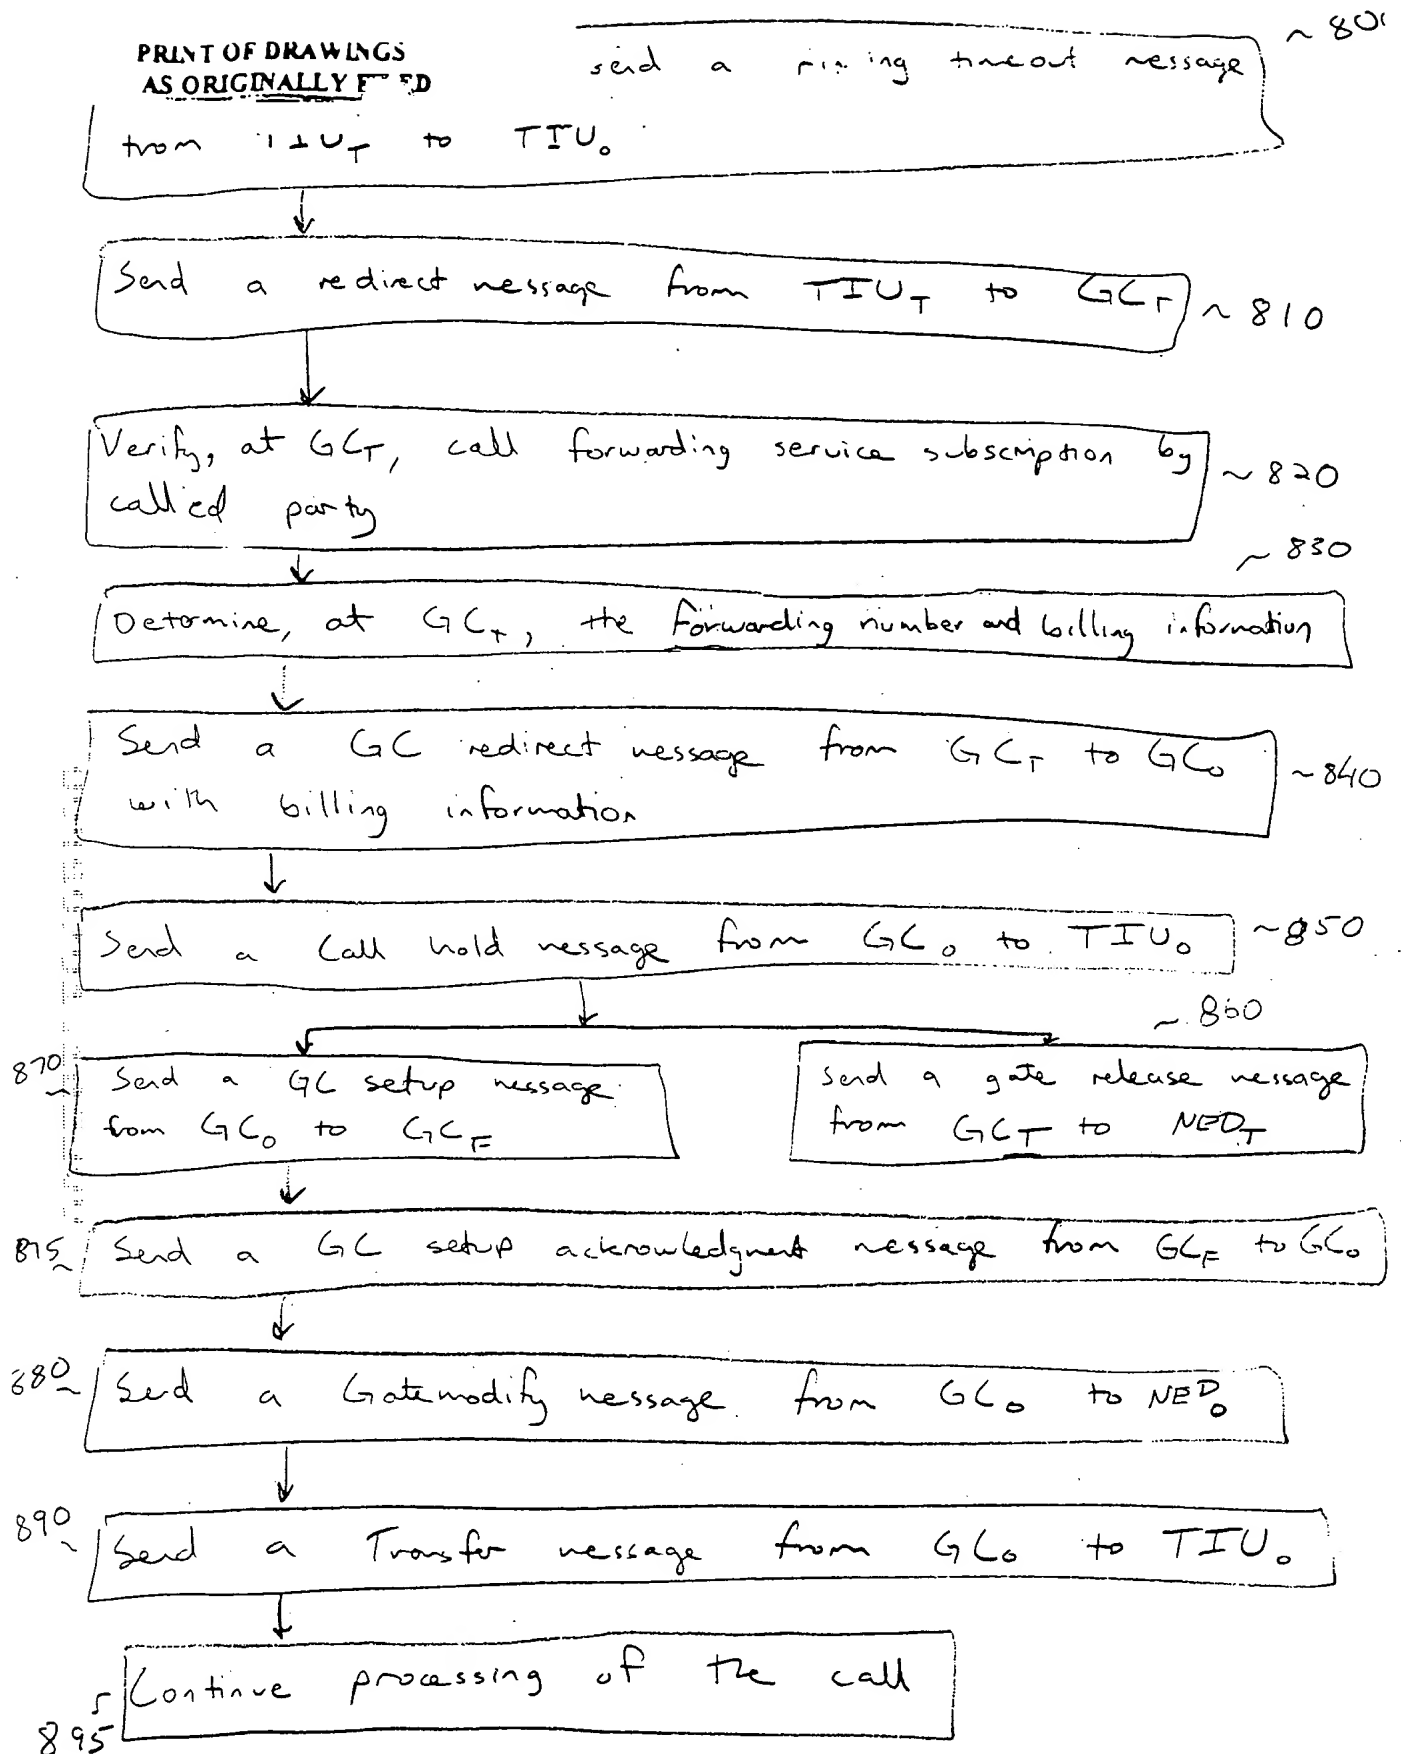 PRINT OF DRAWINGS
AS ORIGINALLY
~ 80
send a timeout message
from TIU_T to TIU_O
Send a redirect message from TIU_T to GC_T
~ 810
Verify, at GC_T, call forwarding service subscription by
called party
~ 820
~ 830
Determine, at GC_T, the forwarding number and billing information
Send a GC redirect message from GC_T to GC_O
with billing information
~ 840
Send a Call hold message from GC_O to TIU_O
~ 850
~ 860
870 ~
Send a GC setup message
from GC_O to GC_F
Send a gate release message
from GC_T to NED_T
875 ~
Send a GC setup acknowledgment message from GC_F to GC_O
880 ~
Send a Gate modify message from GC_O to NED_O
890 ~
Send a Transfer message from GC_O to TIU_O
Continue processing of the call
895